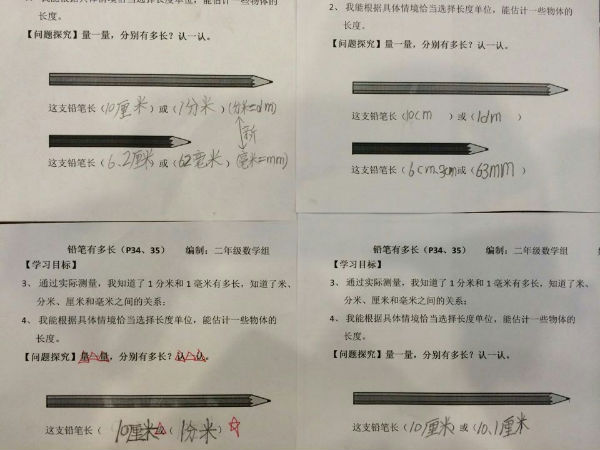 长度。
【问题探究】量一量，分别有多长？认一认。
这支铅笔长（10厘米）或（1分米）(分米=dm)
新
这支铅笔长（6.2厘米）或（62毫米）(毫米=mm)
2、 我能根据具体情境恰当选择长度单位，能估计一些物体的
长度。
【问题探究】量一量，分别有多长？认一认。
这支铅笔长（10cm ）或（1dm ）
这支铅笔长（6cm 或（63mm ）
铅笔有多长（P34、35） 编制：二年级数学组
【学习目标】
3、 通过实际测量，我知道了 1 分米和 1 毫米有多长，知道了米、
分米、厘米和毫米之间的关系；
4、 我能根据具体情境恰当选择长度单位，能估计一些物体的
长度。
【问题探究】量一量，分别有多长？认一认。
这支铅笔长（ 10厘米 （1分米）
铅笔有多长（P34、35） 编制：二年级数学组
【学习目标】
3、 通过实际测量，我知道了 1 分米和 1 毫米有多长，知道了米、
分米、厘米和毫米之间的关系；
4、 我能根据具体情境恰当选择长度单位，能估计一些物体的
长度。
【问题探究】量一量，分别有多长？认一认。
这支铅笔长（10厘米）或（10.1厘米